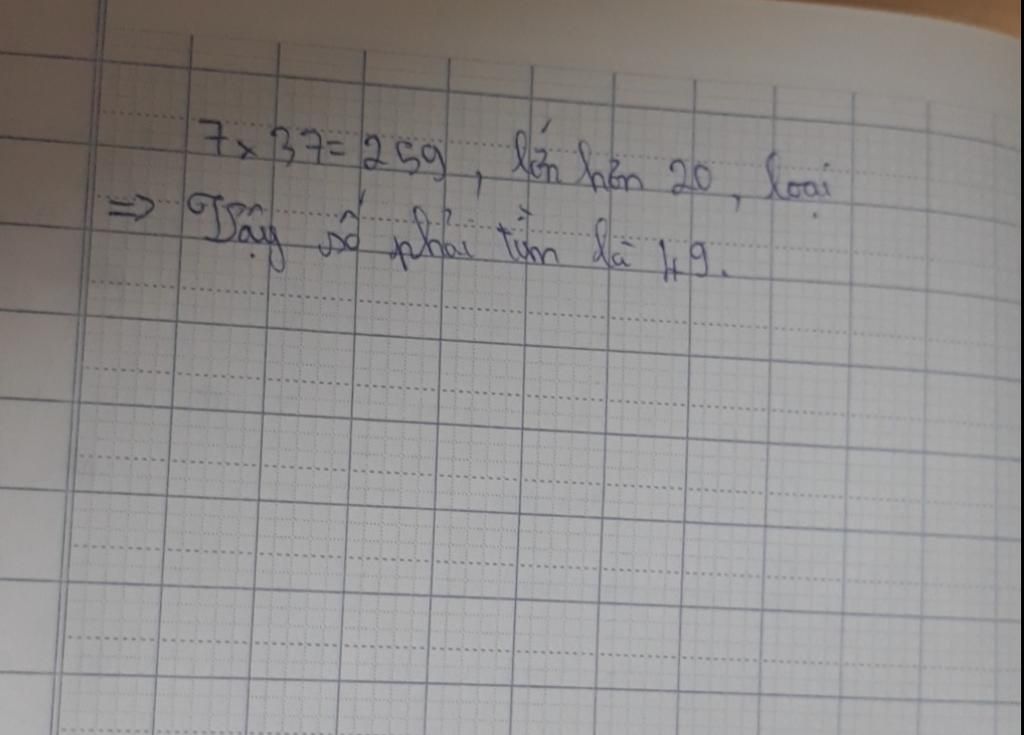 7 x 37 = 259, lớn hơn 20, loại
=> Vậy số phải tìm là 49.